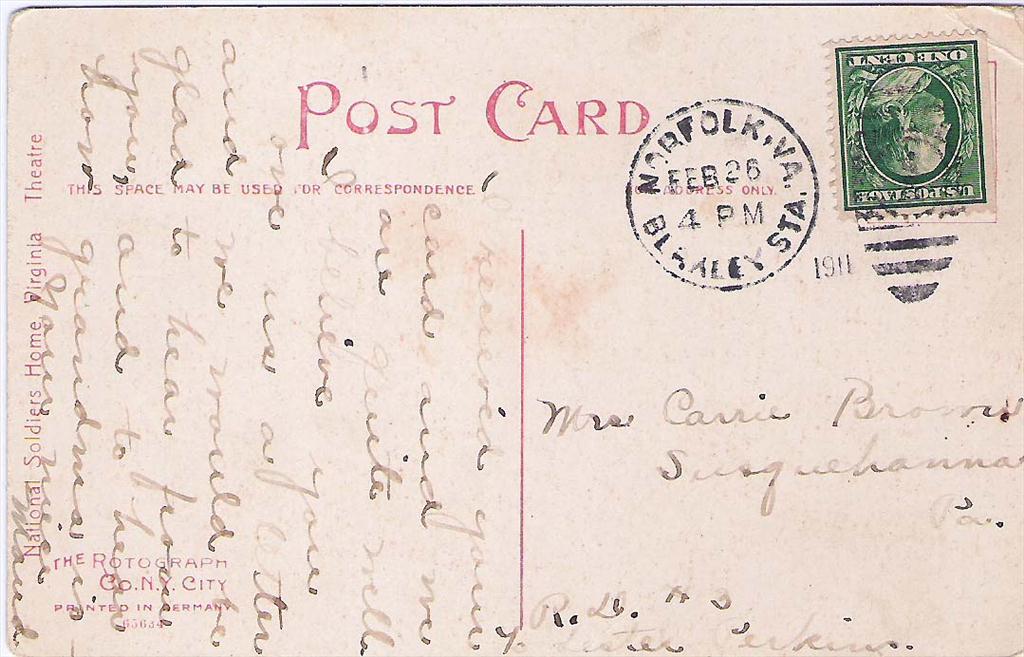 POST CARD
THIS SPACE MAY BE USED FOR CORRESPONDENCE
ADDRESS ONLY.
NORFOLK, VA.
FEB 26
4 PM
1911
STA.
ONE CENT
U.S. POSTAGE
I receiv'd your
card and we
are quite well
I believe you
owe us a letter
and we would be
glad to hear from
you, and to hear
how grandma is
Your niece
Maud
Mrs Carrie Brown
Susquehanna
Pa.
R.D. # 3
% Lester Perkins.
National Soldiers Home, Virginia Theatre
THE ROTOGRAPH
CO. N.Y. CITY
PRINTED IN GERMANY
65634